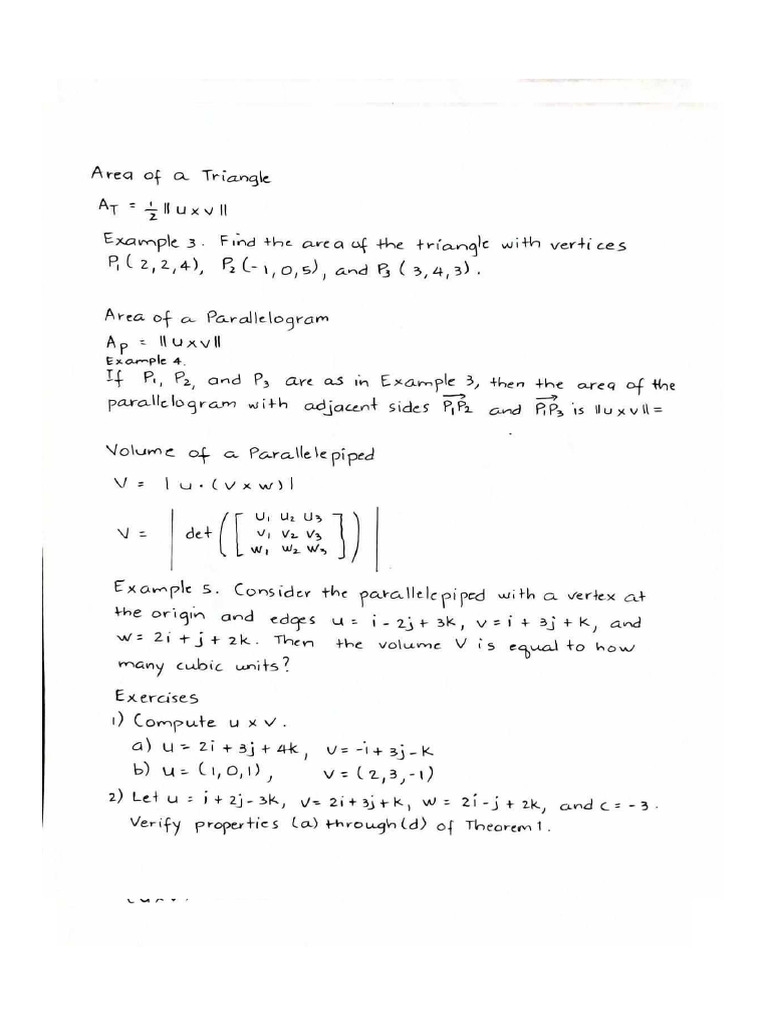 Area of a Triangle
A_T = ½ ‖u×v‖
Example 3. Find the area of the triangle with vertices
P₁(2,2,4), P₂(-1,0,5), and P₃(3,4,3).
Area of a Parallelogram
A_p = ‖u×v‖
Example 4.
If P₁, P₂, and P₃ are as in Example 3, then the area of the
parallelogram with adjacent sides P₁P₂ and P₁P₃ is ‖u×v‖=
Volume of a Parallelepiped
V = |u·(v×w)|
V = |det([u₁ u₂ u₃
v₁ v₂ v₃
w₁ w₂ w₃])|
Example 5. Consider the parallelepiped with a vertex at
the origin and edges u = i - 2j + 3k, v = i + 3j + k, and
w = 2i + j + 2k. Then the volume V is equal to how
many cubic units?
Exercises
1) Compute u × v.
a) u = 2i + 3j + 4k, v = -i + 3j - k
b) u = (1,0,1), v = (2,3,-1)
2) Let u = i + 2j - 3k, v = 2i + 3j + k, w = 2i - j + 2k, and c = -3.
Verify properties (a) through (d) of Theorem 1.